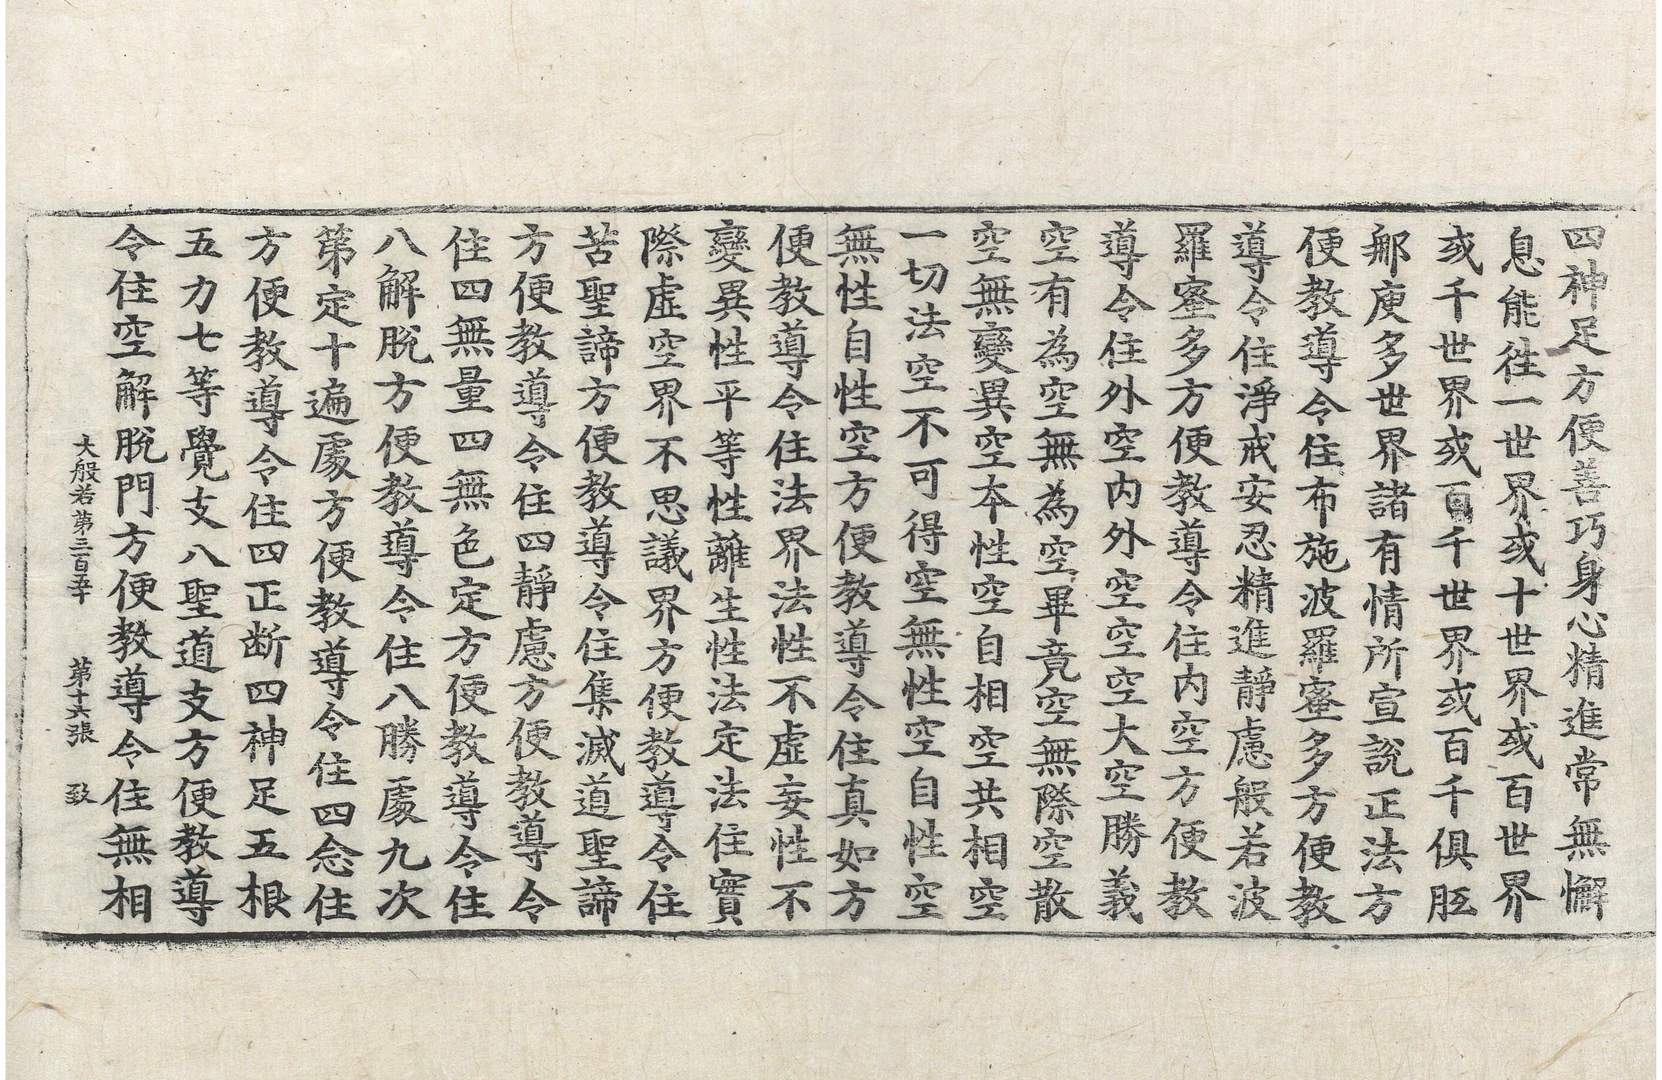 四神足方便善巧身心精進常無懈
息能徃一世界或十世界或百世界
或千世界或百千世界或百千俱胝
那庾多世界諸有情所宣說正法方
便教導令住布施波羅蜜多方便教
導令住淨戒安忍精進靜慮般若波
羅蜜多方便教導令住内空方便教
導令住外空内外空空空大空勝義
空有為空無為空畢竟空無際空散
空無變異空本性空自相空共相空
一切法空不可得空無性空自性空
無性自性空方便教導令住真如方
便教導令住法界法性不虛妄性不
變異性平等性離生性法定法住實
際虛空界不思議界方便教導令住
苦聖諦方便教導令住集滅道聖諦
方便教導令住四靜慮方便教導令
住四無量四無色定方便教導令住
八解脫方便教導令住八勝處九次
第定十遍處方便教導令住四念住
方便教導令住四正断四神足五根
五力七等覺支八聖道支方便教導
令住空解脫門方便教導令住無相
大般若第三百五十 第十六張 致